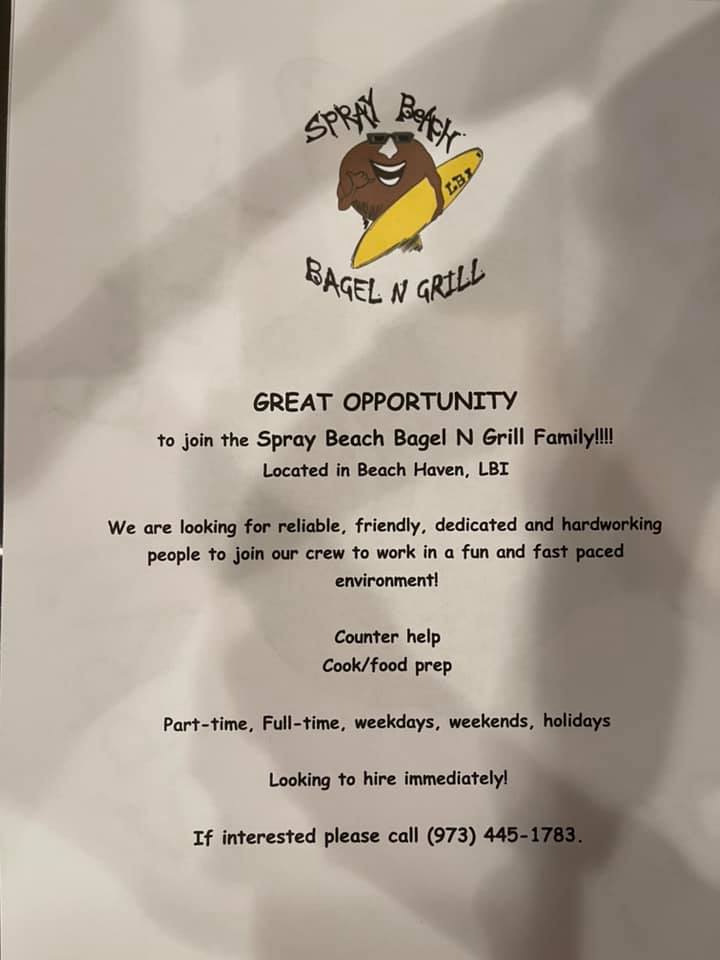 SPRAY BEACH
LBI
BAGEL N GRILL
GREAT OPPORTUNITY
to join the Spray Beach Bagel N Grill Family!!!!
Located in Beach Haven, LBI
We are looking for reliable, friendly, dedicated and hardworking
people to join our crew to work in a fun and fast paced
environment!
Counter help
Cook/food prep
Part-time, Full-time, weekdays, weekends, holidays
Looking to hire immediately!
If interested please call (973) 445-1783.